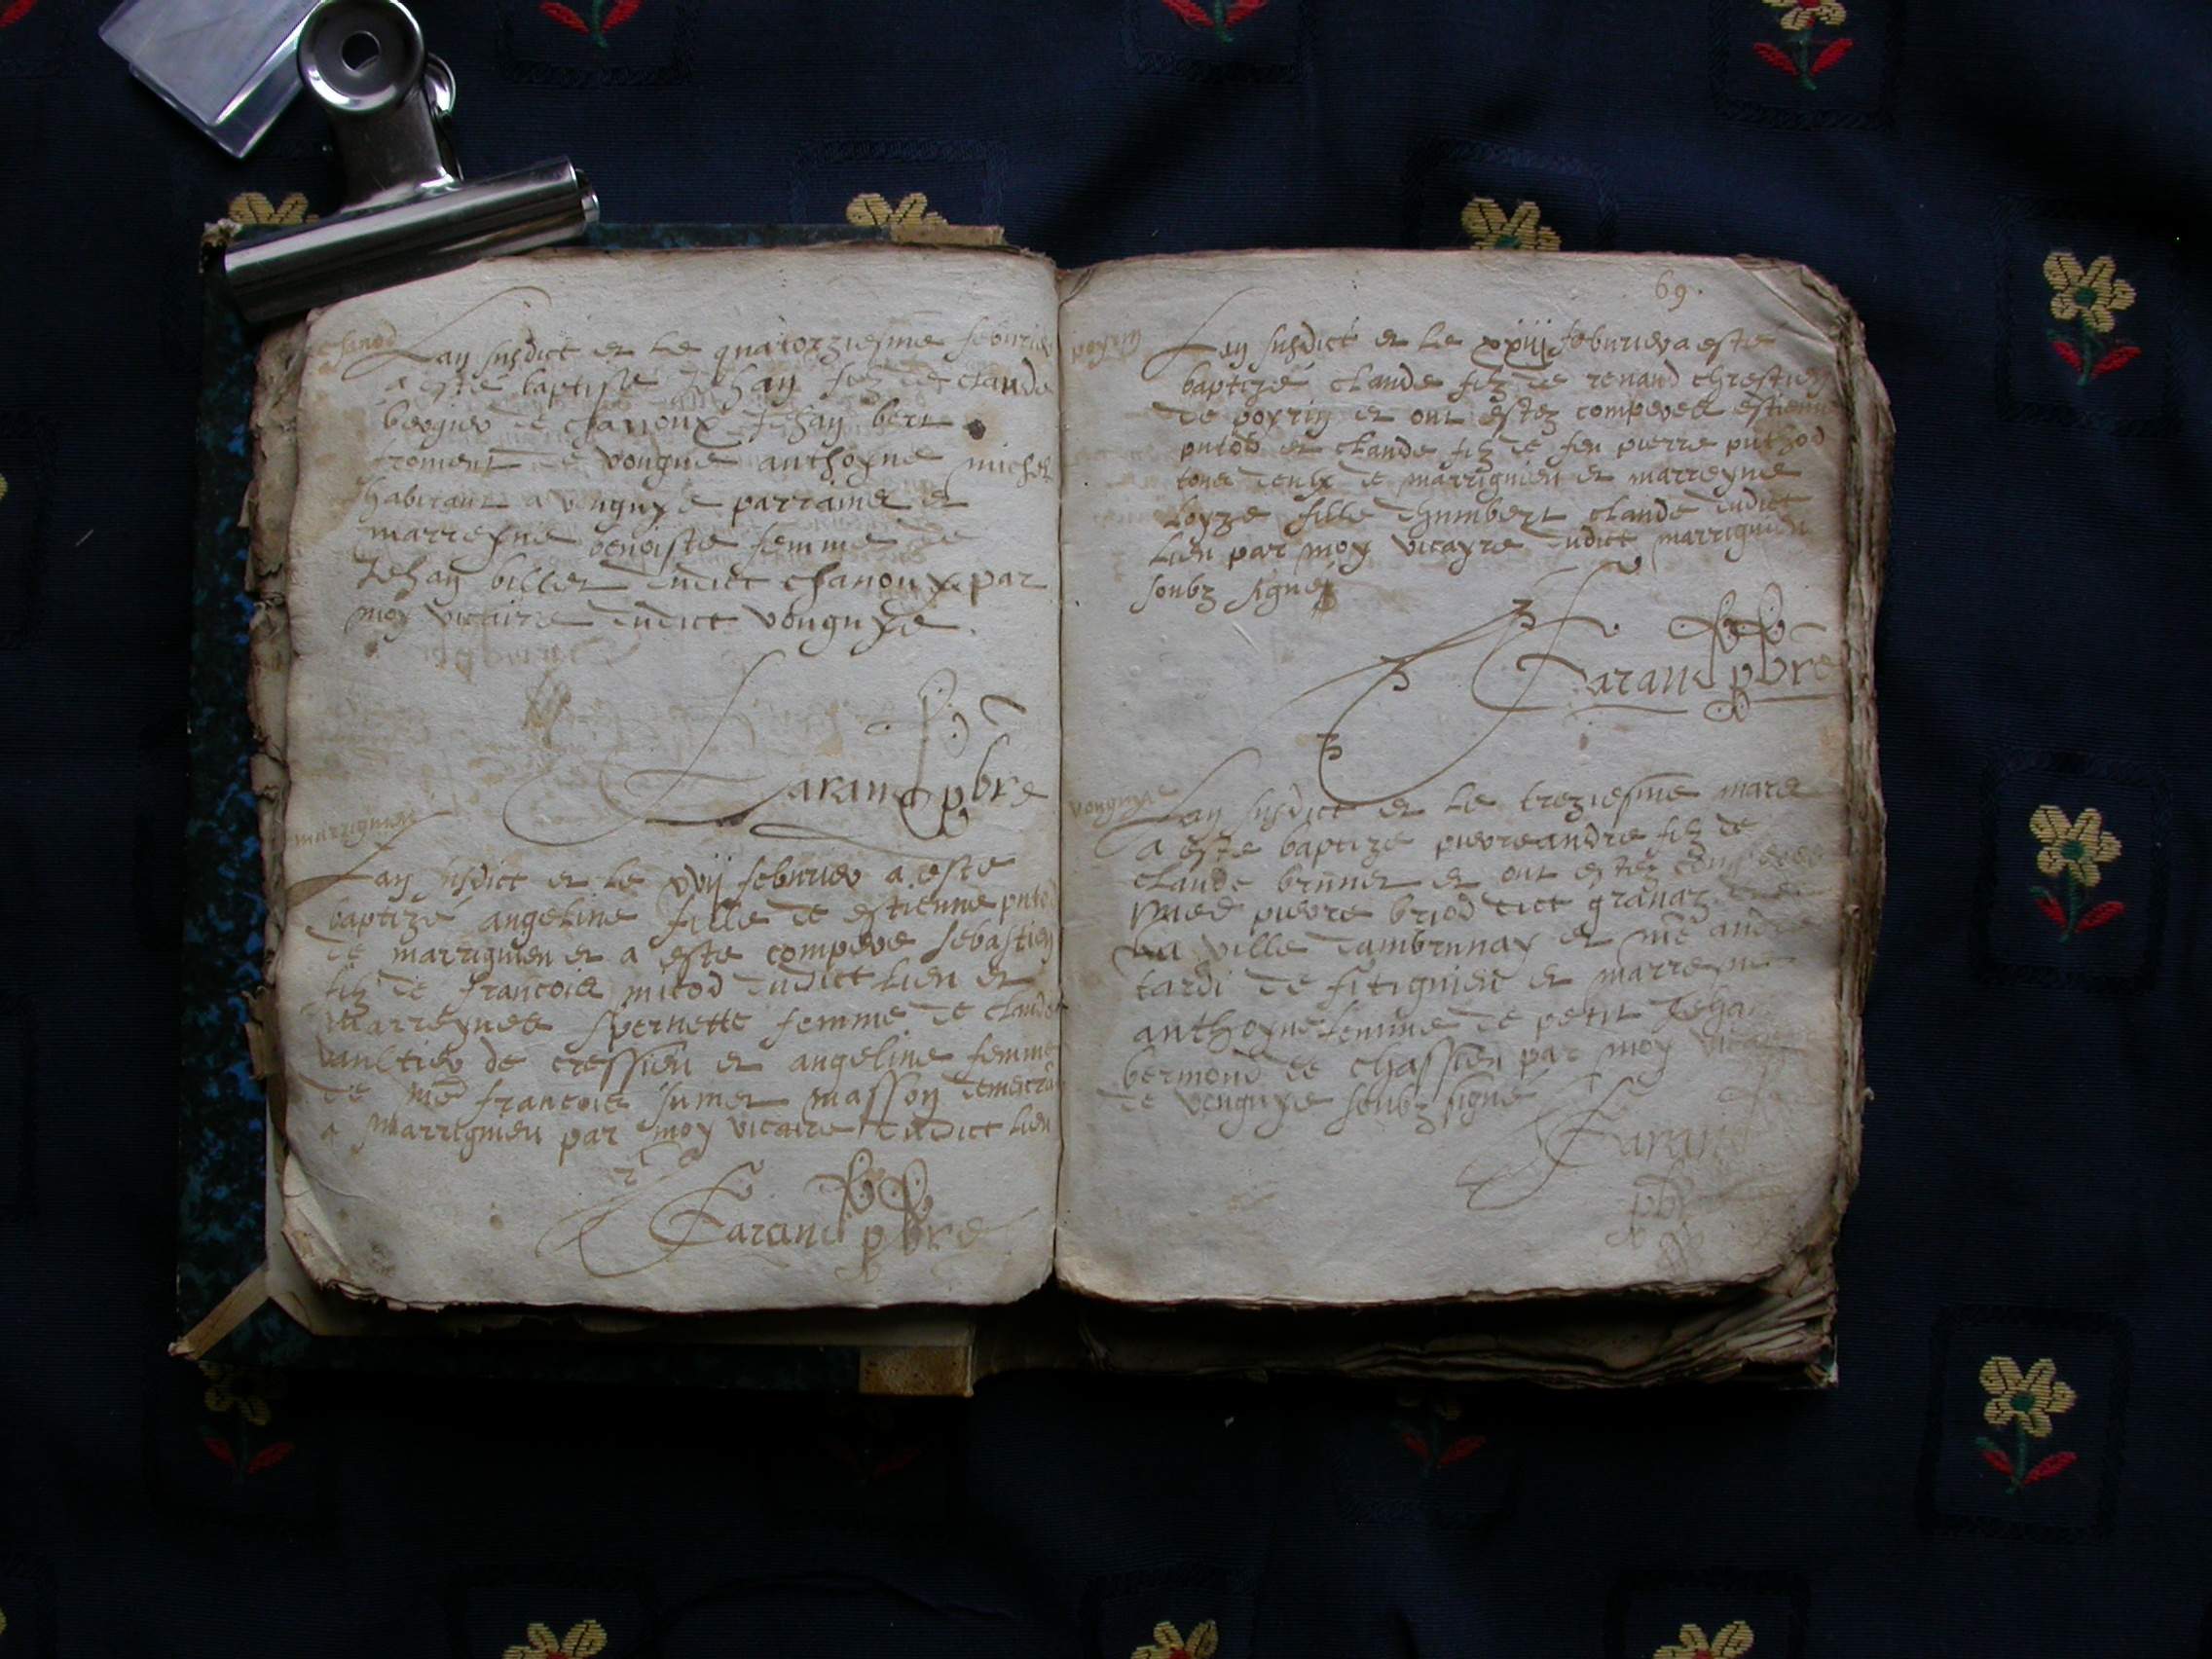 Lan susdict et le quatorziesme febvrier
a este baptisé Jehan filz de claude
bergier de chanoux Jehan bert
froment de vougne anthoyne michel
habitant a vougnye parrains et
marreyne benoiste femme de
Jehan billet dudict chanoux par
moy vicaire dudict vougnye.
Farand pbre
marrignieu
Lan susdict et le xvij febvrier a este
baptizé angeline fille de estienne putod
de marrignieu et a este compere sebastien
filz de francois mitod dudict lieu et
marreynes pernette femme de claude
vaultier de cressieu et angeline femme
de francois masson demeurant
a marrignieu par moy vicaire dudict lieu
Farand pbre
69.
poyrin
Lan susdict et le xxiij febvrier a este
baptizé claude filz de renaud chrestien
de poyrin et ont estez comperes estienne
putod et claude filz de feu pierre puthod
tous deulx de marrignieu et marreyne
loyze fille dhumbert claude dudict
lieu par moy vicayre dudict marrignieu
soubz signé
Farand pbre
vougnye
Lan susdict et le treziesme mars
a este baptize pierre andre filz de
claude brunet et ont estez comperes
pierre briod dict granat de
la ville dambrunay et me andre
tardi de fitignieu et marreyne
anthoyne femme de petit Jehan
bermond de chassieu par moy vicayre
de vougnye soubz signé
Farand
pbre